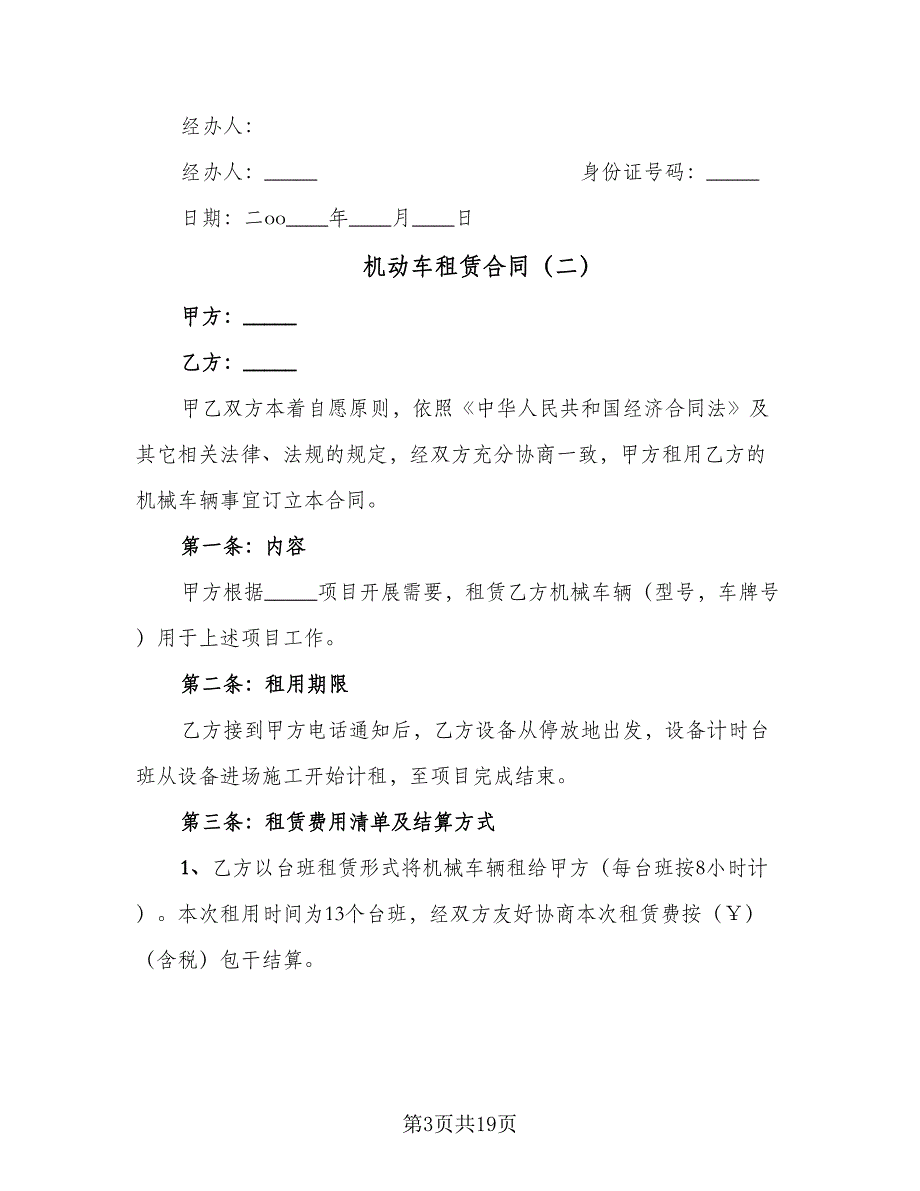 经办人：
经办人：_____ 身份证号码：_____
日期：二oo____年____月____日
机动车租赁合同（二）
甲方：_____
乙方：_____
甲乙双方本着自愿原则，依照《中华人民共和国经济合同法》及
其它相关法律、法规的规定，经双方充分协商一致，甲方租用乙方的
机械车辆事宜订立本合同。
第一条：内容
甲方根据_____项目开展需要，租赁乙方机械车辆（型号，车牌号
）用于上述项目工作。
第二条：租用期限
乙方接到甲方电话通知后，乙方设备从停放地出发，设备计时台
班从设备进场施工开始计租，至项目完成结束。
第三条：租赁费用清单及结算方式
1、乙方以台班租赁形式将机械车辆租给甲方（每台班按8小时计
）。本次租用时间为13个台班，经双方友好协商本次租赁费按（￥）
（含税）包干结算。
第3页共19页